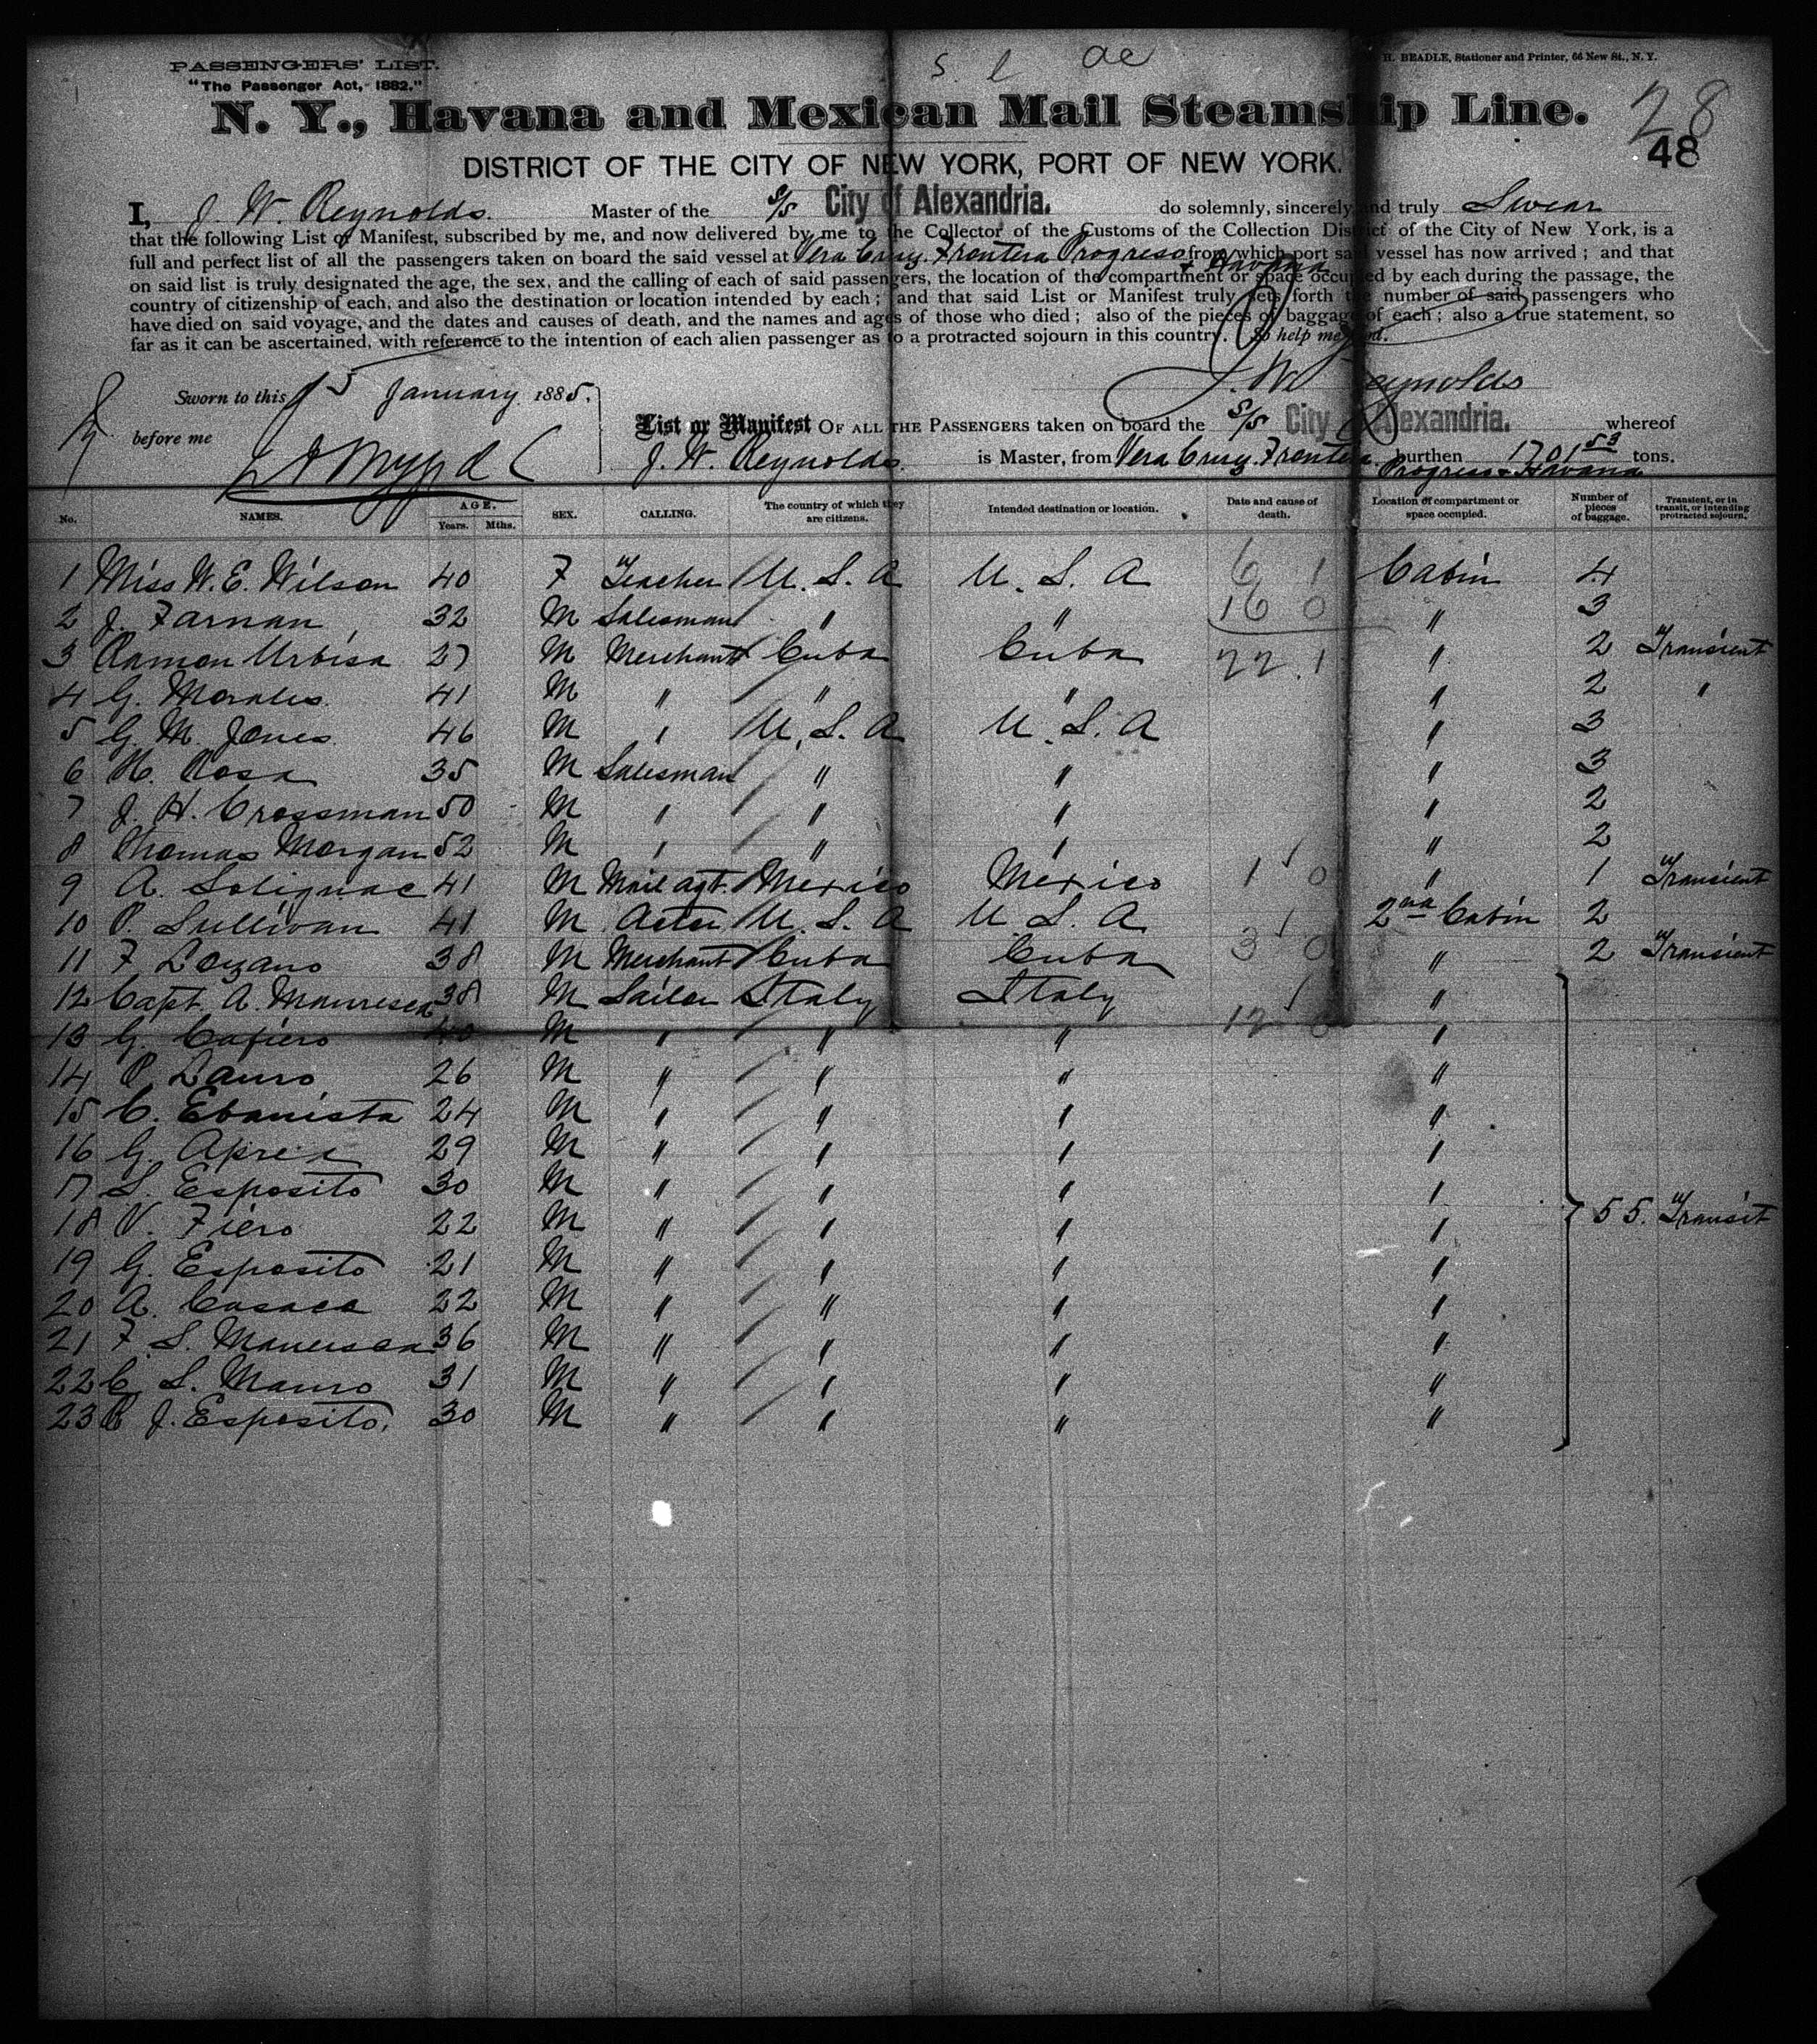 s. l ae
PASSENGERS' LIST.
"The Passenger Act, 1882."
H. BEADLE, Stationer and Printer, 66 New St., N. Y.
N. Y., Havana and Mexican Mail Steamship Line.
28
48
DISTRICT OF THE CITY OF NEW YORK, PORT OF NEW YORK.
I, J. W. Reynolds. Master of the S/S City of Alexandria. do solemnly, sincerely and truly Swear
that the following List or Manifest, subscribed by me, and now delivered by me to the Collector of the Customs of the Collection District of the City of New York, is a
full and perfect list of all the passengers taken on board the said vessel at Vera Cruz, Frontera Progreso & Havana from which port said vessel has now arrived ; and that
on said list is truly designated the age, the sex, and the calling of each of said passengers, the location of the compartment or space occupied by each during the passage, the
country of citizenship of each, and also the destination or location intended by each ; and that said List or Manifest truly sets forth the number of said passengers who
have died on said voyage, and the dates and causes of death, and the names and ages of those who died ; also of the pieces of baggage of each ; also a true statement, so
far as it can be ascertained, with reference to the intention of each alien passenger as to a protracted sojourn in this country. So help me
J. W. Reynolds
Sworn to this 15 January 1885.
before me
List or Manifest OF ALL THE PASSENGERS taken on board the S/S City of Alexandria. whereof
J. W. Reynolds. is Master, from Vera Cruz, Frontera Progreso & Havana burthen 1701 53 tons.
No. NAMES. AGE. Years. Mths. SEX. CALLING. The country of which they are citizens. Intended destination or location. Date and cause of death. Location of compartment or space occupied. Number of pieces of baggage. Transient, or in transit, or intending protracted sojourn.
1 Miss W. E. Wilson 40 F Teacher U. S. A U. S. A 6 1 Cabin 4
2 J. Farnan 32 M Salesman " " 16 0 " 3
3 Ramon Urbisa 27 M Merchant Cuba Cuba 22. 1 " 2 Transient
4 G. Morales. 41 M " " " " 2 "
5 G. M. Jones. 46 M " U. S. A U. S. A " 3
6 H. Rosa 35 M Salesman " " " 3
7 J. H. Crossman 50 M " " " " 2
8 Thomas Morgan 52 M " " " " 2
9 A. Solignac 41 M Mail agt. Mexico Mexico 1 0 " 1 Transient
10 P. Sullivan 41 M Actor U. S. A U. S. A 2nd Cabin 2
11 F Lozano 38 M Merchant Cuba Cuba 3 0 " 2 Transient
12 Capt. A. 38 M Sailor Italy Italy "
13 G. Cafiero 40 M " " " 12 0 "
14 P. Lauro 26 M " " " "
15 C. Ebanista 24 M " " " "
16 G. Aprea 29 M " " " "
17 S. Esposito 30 M " " " "
18 V. Fiero 22 M " " " " 55. Transit
19 G. Esposito 21 M " " " "
20 A. 22 M " " " "
21 F. S. 36 M " " " "
22 C. S. Mauro 31 M " " " "
23 R J. Esposito. 30 M " " " "